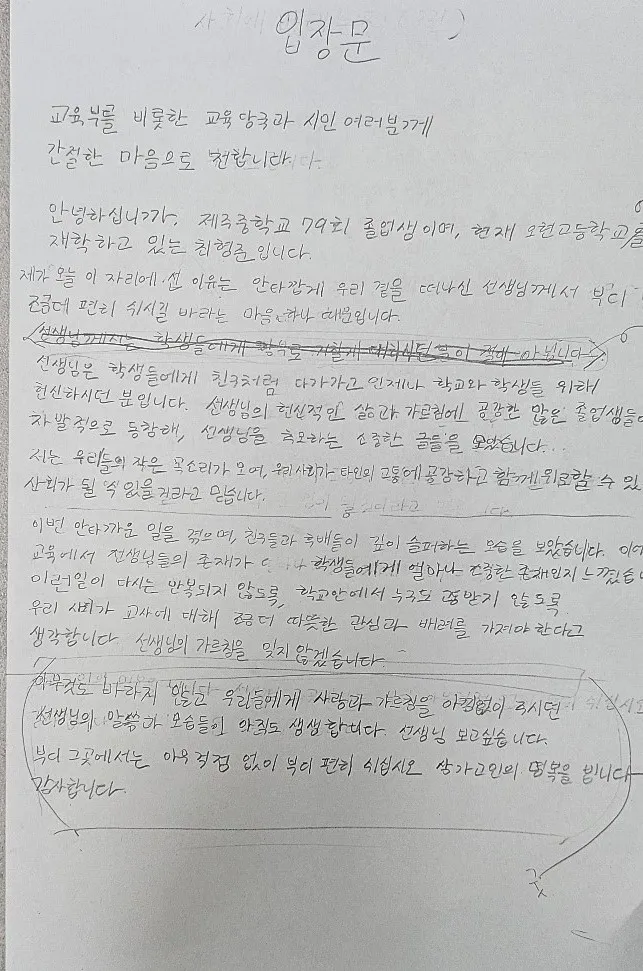 입장문
교육부를 비롯한 교육 당국과 시민 여러분께
간절한 마음으로 전합니다.
안녕하십니까. 제주중학교 79회 졸업생이며, 현재 오현고등학교를
재학하고 있는 최형준입니다.
제가 오늘 이 자리에 선 이유는 안타깝게 우리 곁을 떠나신 선생님께서 부디
조금더 편히 쉬시길 바라는 마음 하나 때문입니다.
선생님께서는 학생들에게 절대 아닙니다
선생님은 학생들에게 친구처럼 다가가고 언제나 학교와 학생들 위해
헌신하시던 분입니다. 선생님의 헌신적인 삶과 가르침에 공감한 많은 졸업생들이
자발적으로 동참해, 선생님을 추모하는 소중한 글들을 모았습니다.
저는 우리들의 작은 목소리가 모여, 우리 사회가 타인의 고통에 공감하고 함께 위로할 수 있
사회가 될 수 있을 것라고 믿습니다.
이번 안타까운 일을 겪으며, 친구들과 후배들이 깊이 슬퍼하는 모습을 보았습니다.
교육에서 선생님들의 존재가 학생들에게 얼마나 소중한 존재인지 느꼈습
이런일이 다시는 반복되지 않도록, 학교안에서 누구도 고통받지 않도록
우리 사회가 교사에 대해 조금더 따뜻한 관심과 배려를 가져야 한다고
생각합니다. 선생님의 가르침을 잊지 않겠습니다.
아무것도 바라지 않고 우리들에게 사랑과 가르침을 아낌없이 주시던
선생님의 말씀하 모습들이 아직도 생생합니다. 선생님 보고싶습니다.
부디 그곳에서는 아무 걱정 없이 부디 편히 쉬십시오 삼가고인의 명복을 빕니다
감사합니다.